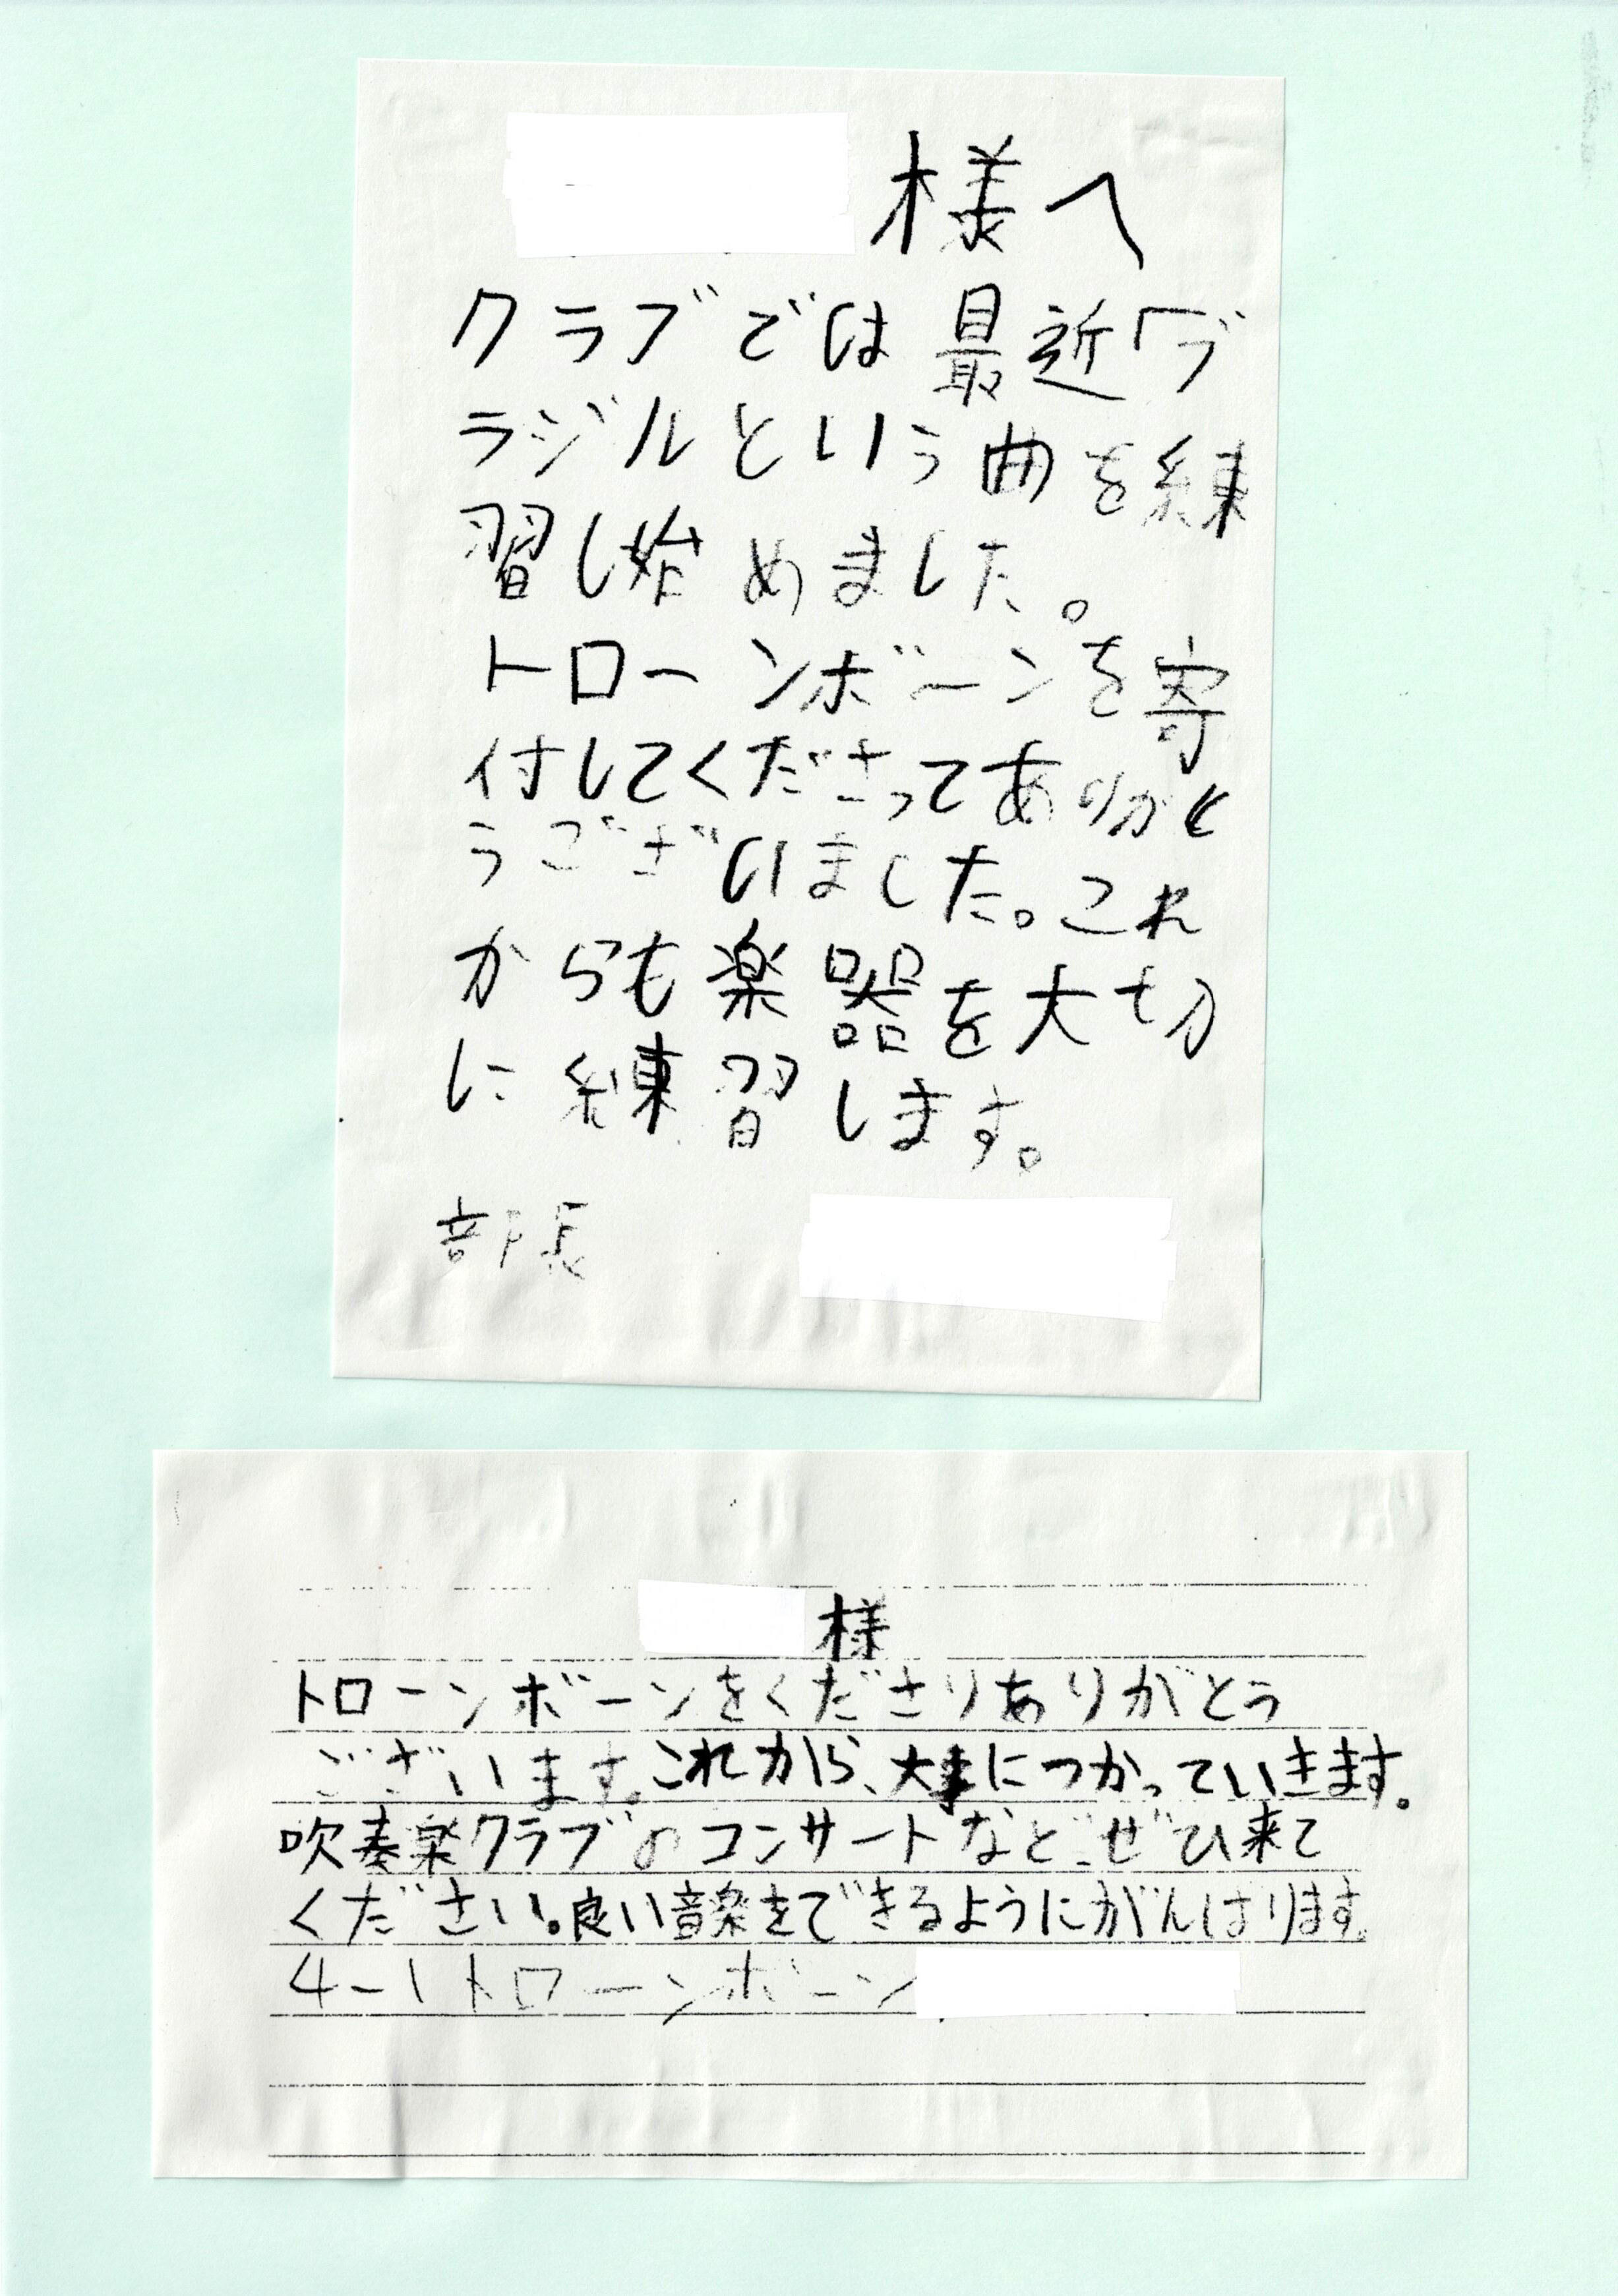 様へ
クラブでは最近「ブ
ラジルという曲を練
習し始めました。
トローンボーンを寄
付してくださってありがと
うございました。これ
からも楽器を大切
に練習します。
部長
様
トローンボーンをくださりありがとう
ございます。これから、大事につかっていきます。
吹奏楽クラブのコンサートなどぜひ来て
ください。良い音楽をできるようにがんばります。
4-1トローンボーン